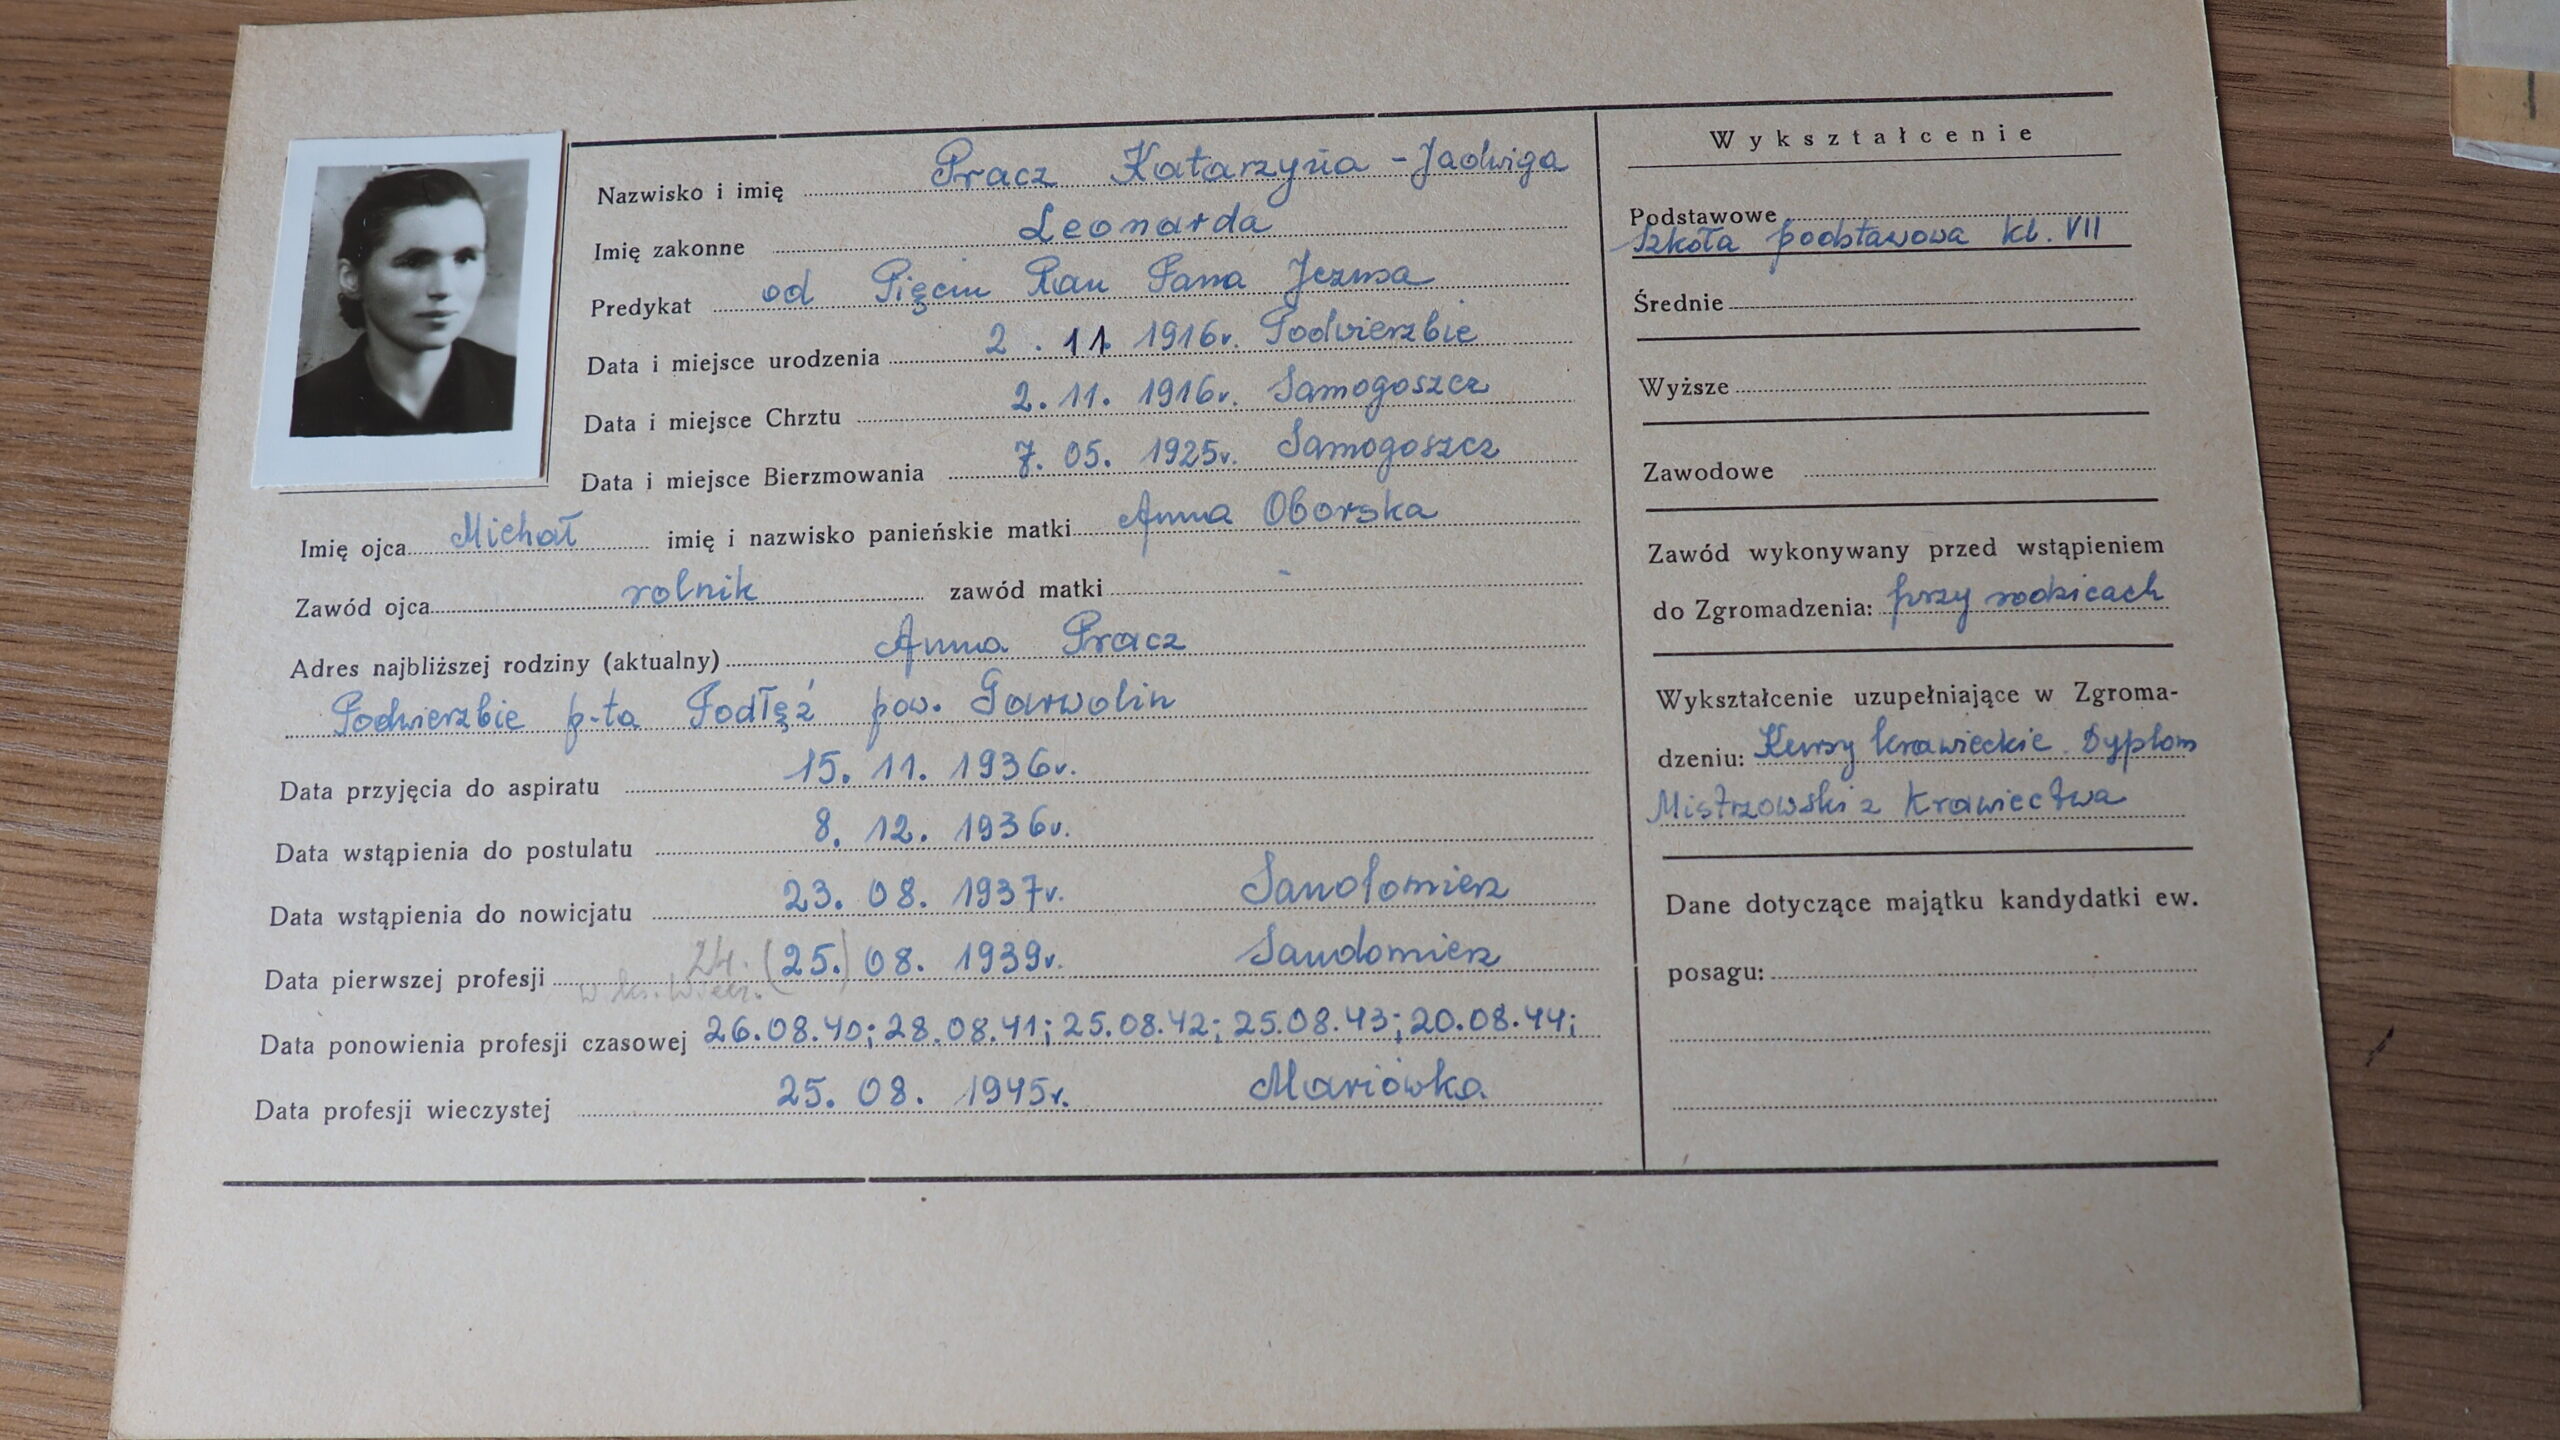 Nazwisko i imię Pracz Katarzyna - Jadwiga
Imię zakonne Leonarda
Predykat od Pięciu Ran Pana Jezusa
Data i miejsce urodzenia 2. 11. 1916r. Podwierzbie
Data i miejsce Chrztu 2. 11. 1916r. Samogoszcz
Data i miejsce Bierzmowania 7. 05. 1925r. Samogoszcz
Imię ojca Michał imię i nazwisko panieńskie matki Anna Oborska
Zawód ojca rolnik zawód matki -
Adres najbliższej rodziny (aktualny) Anna Pracz
Podwierzbie p-ta Podłęż pow. Garwolin
Data przyjęcia do aspiratu 15. 11. 1936r.
Data wstąpienia do postulatu 8. 12. 1936r.
Data wstąpienia do nowicjatu 23. 08. 1937r. Sandomierz
Data pierwszej profesji 24. (25.) 08. 1939r. Sandomierz
Data ponowienia profesji czasowej 26.08.40; 28.08.41; 25.08.42; 25.08.43; 20.08.44;
Data profesji wieczystej 25. 08. 1945r. Mariówka
Wykształcenie
Podstawowe
Szkoła podstawowa kl. VII
Średnie
Wyższe
Zawodowe
Zawód wykonywany przed wstąpieniem
do Zgromadzenia: przy rodzicach
Wykształcenie uzupełniające w Zgroma-
dzeniu: Kursy krawieckie Dyplom
Mistrzowski z Krawiectwa
Dane dotyczące majątku kandydatki ew.
posagu: